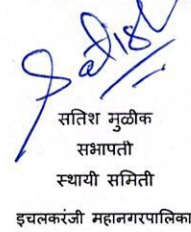 Satish
सतिश मुळीक
सभापती
स्थायी समिती
इचलकरंजी महानगरपालिका